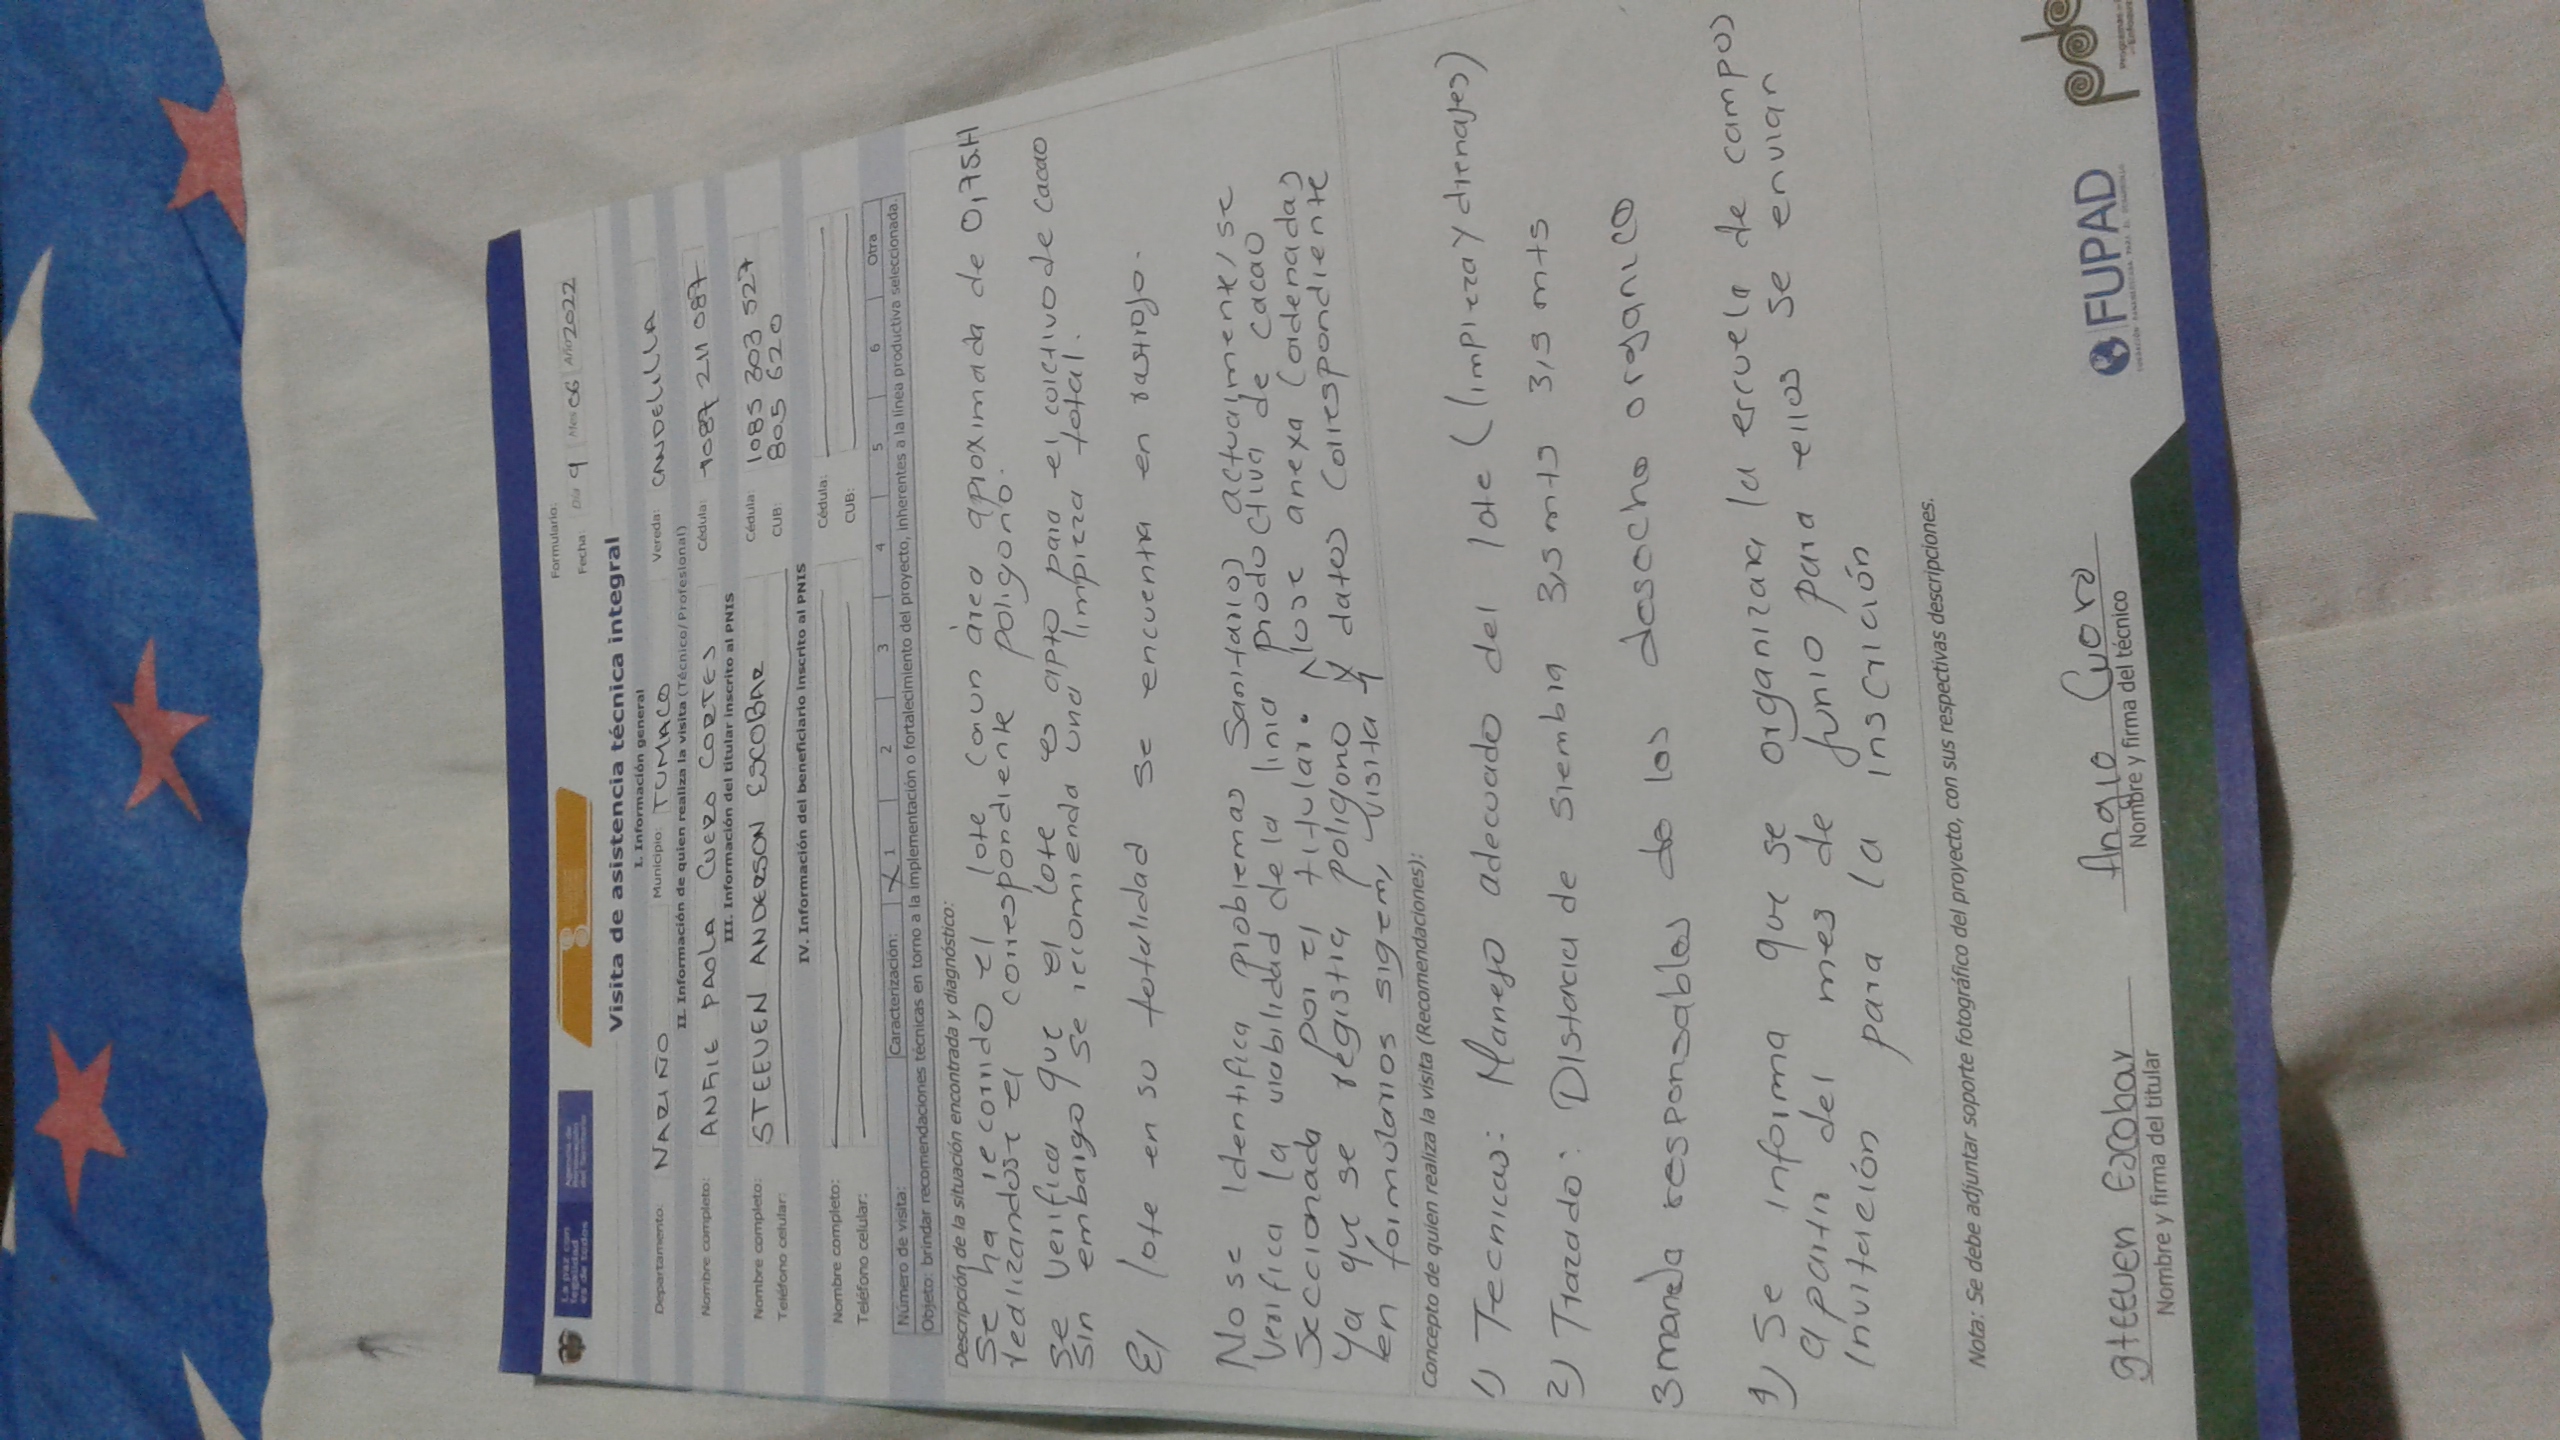 La paz con legalidad es de todos
Agencia de Renovación del Territorio
Formulario:
Fecha: Día 9 Mes 06 Año 2022
Visita de asistencia técnica integral
I. Información general
Departamento: NARIÑO Municipio: TUMACO Vereda: CANDELILLA
II. Información de quien realiza la visita (Técnico/ Profesional)
Nombre completo: ANGIE PAOLA CUERO CORTES Cédula: 1087 211 087
III. Información del titular inscrito al PNIS
Nombre completo: STEEVEN ANDERSON ESCOBAR Cédula: 1085 303 527
Teléfono celular: CUB: 805 620
IV. Información del beneficiario inscrito al PNIS
Nombre completo: Cédula:
Teléfono celular: CUB:
Número de visita: Caracterización: X 1 2 3 4 5 6 Otra
Objeto: brindar recomendaciones técnicas en torno a la implementación o fortalecimiento del proyecto, inherentes a la línea productiva seleccionada.
Descripción de la situación encontrada y diagnóstico:
Se ha recorrido el lote con un área aproximada de 0,75.H
realizandose el correspondiente poligono.
Se verifica que el lote es apto para el coltivo de cacao
sin embargo que se recomienda una limpieza total.
El lote en su totalidad se encuentra en rastrojo.
No se Identifica problemas Sanitarios actualmente, se
verifica la viabilidad de la linia productiva de cacao
Seccionada por el titular. Nose anexa coordenadas
Ya que se registra poligono y datos correspondiente
en formularios sigem, visita 1
Concepto de quien realiza la visita (Recomendaciones):
1) Tecnicas: Manejo adecuado del lote (limpieza y drenajes)
2) Trazado: Distancia de siembra 3,5 mts 3,5 mts
3 maneja responsables de los desecho organico
4) Se informa que se organizara la escuela de campos
a partir del mes de junio para ellos se envian
invitación para la inscrición
Nota: Se debe adjuntar soporte fotográfico del proyecto, con sus respectivas descripciones.
steeven Escobar
Nombre y firma del titular
Angie Cuero
Nombre y firma del técnico
FUPAD